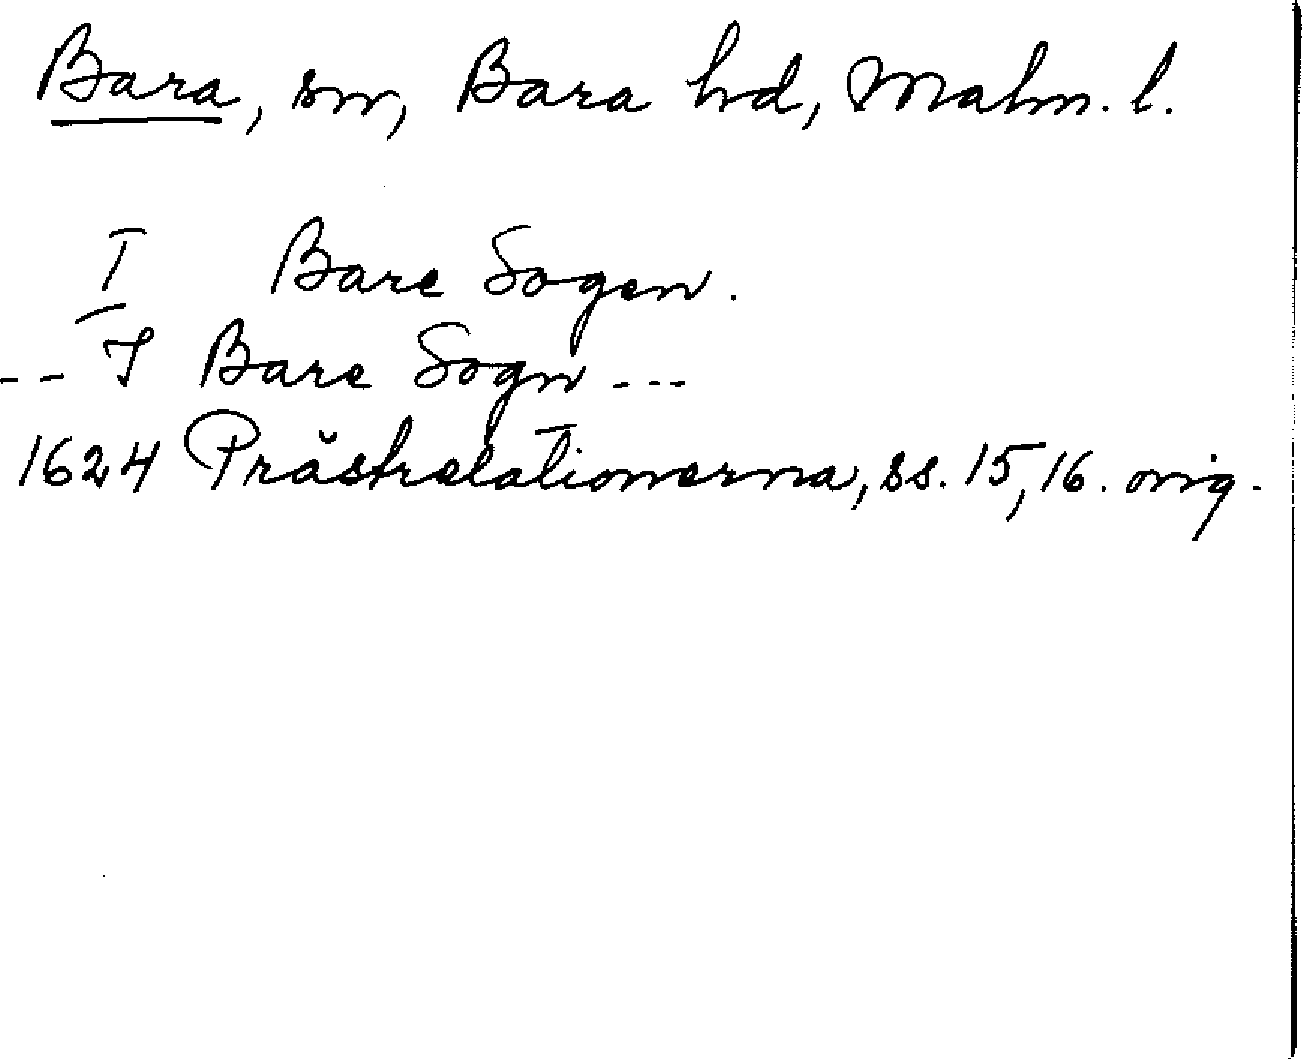 Bara, sn, Bara hd, Malm. l.
I Bare Sogen.
-- I Bare Sogn ---
1624 Prästrelationerna, ss. 15, 16. orig.